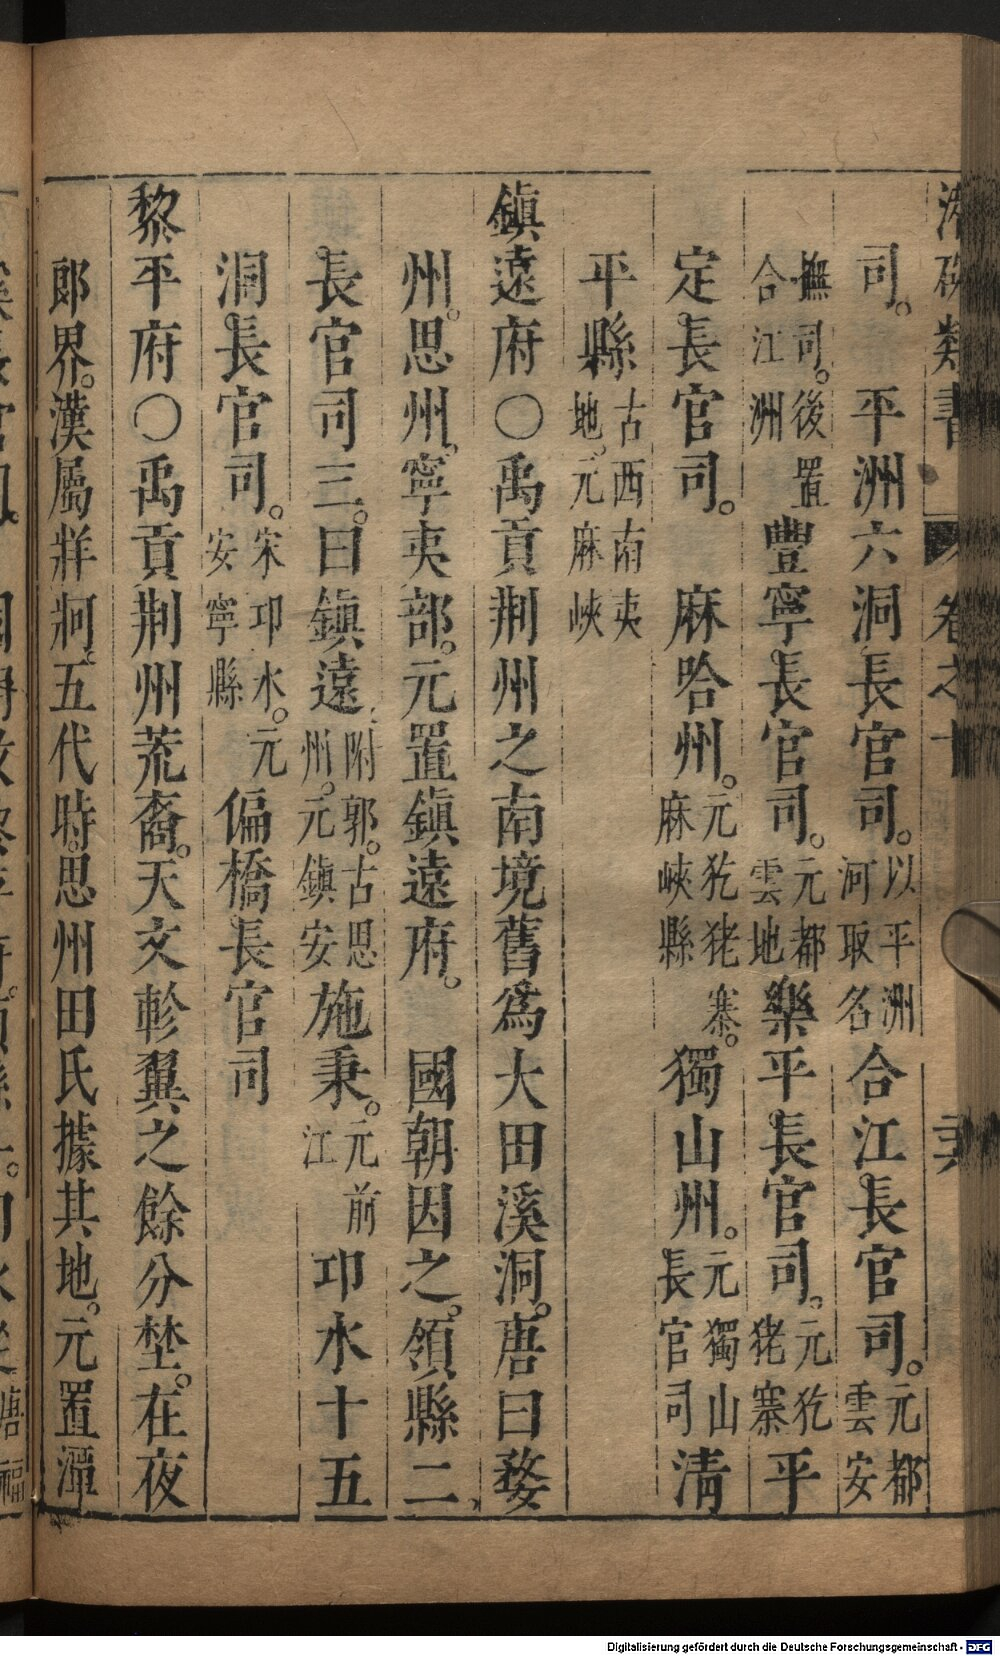 類書 卷之十
司。 平洲六洞長官司。以平洲河取名合江長官司。元都雲安
撫司。後置合江洲豐寧長官司。元都雲地樂平長官司。元犵狫寨平
定長官司。 麻哈州。元犵狫寨。麻峽縣獨山州。元獨山長官司清
平縣古西南夷地。元麻峽
鎮遠府○禹貢荆州之南境舊爲大田溪洞。唐曰婺
州。思州。寧夷部。元置鎮遠府。 國朝因之。領縣二
長官司三。曰鎮遠附郭。古思州。元鎮安施秉。元前江卭水十五
洞長官司。宋卭水。元安寧縣偏橋長官司
黎平府○禹貢荆州荒裔。天文軫翼之餘分埜。在夜
郎界。漢屬牂牁。五代時。思州田氏據其地。元置潭
Digitalisierung gefördert durch die Deutsche Forschungsgemeinschaft - DFG